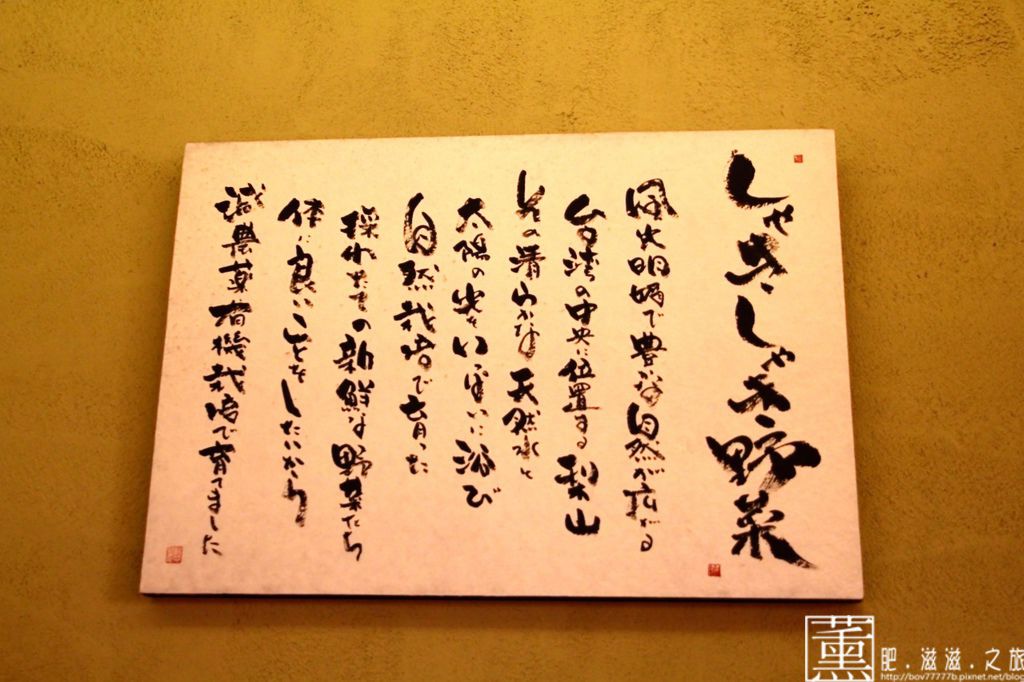 しゃきしゃき野菜
風光明媚で豊かな自然が広がる
台湾の中央に位置する梨山
その清らかな天然水と
太陽の光をいっぱいに浴び
自然栽培で育った
採れたての新鮮な野菜たち
体に良いことをしたいから
減農薬有機栽培で育てました
薫 肥.滋滋.之旅
http://bov77777b.pixnet.net/blog